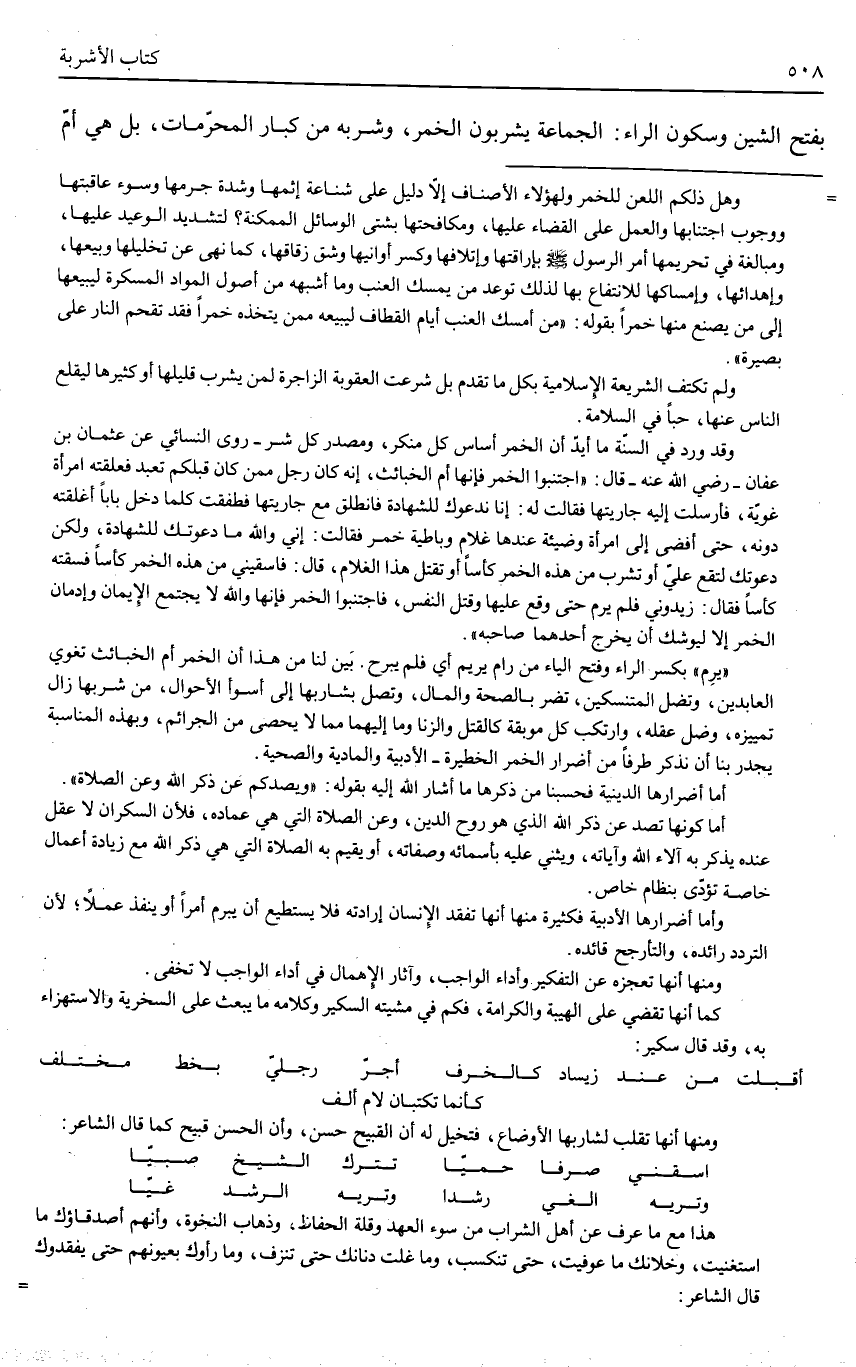 كتاب الأشربة
٥٠٨
بفتح الشين وسكون الراء: الجماعة يشربون الخمر، وشربه من كبار المحرّمات، بل هي أمّ
= وهل ذلكم اللعن للخمر ولهؤلاء الأصناف إلّا دليل على شناعة إثمها وشدة جرمها وسوء عاقبتها
ووجوب اجتنابها والعمل على القضاء عليها، ومكافحتها بشتى الوسائل الممكنة؟ لتشديد الوعيد عليها،
ومبالغة في تحريمها أمر الرسول ﷺ بإراقتها وإتلافها وكسر أوانيها وشق زقاقها، كما نهى عن تخليلها وبيعها،
وإهدائها، وإمساكها للانتفاع بها لذلك توعد من يمسك العنب وما أشبهه من أصول المواد المسكرة ليبيعها
إلى من يصنع منها خمراً بقوله: «من أمسك العنب أيام القطاف ليبيعه ممن يتخذه خمراً فقد تقحم النار على
بصيرة».
ولم تكتف الشريعة الإسلامية بكل ما تقدم بل شرعت العقوبة الزاجرة لمن يشرب قليلها أو كثيرها ليقلع
الناس عنها، حباً في السلامة.
وقد ورد في السنّة ما أيدّ أن الخمر أساس كل منكر، ومصدر كل شر ـ روى النسائي عن عثمان بن
عفان ـ رضي الله عنه ـ قال: «اجتنبوا الخمر فإنها أم الخبائث، إنه كان رجل ممن كان قبلكم تعبد فعلقته امرأة
غويّة، فأرسلت إليه جاريتها فقالت له: إنا ندعوك للشهادة فانطلق مع جاريتها فطفقت كلما دخل باباً أغلقته
دونه، حتى أفضى إلى امرأة وضيئة عندها غلام وباطية خمر فقالت: إني والله ما دعوتك للشهادة، ولكن
دعوتك لتقع عليّ أو تشرب من هذه الخمر كأساً أو تقتل هذا الغلام، قال: فاسقيني من هذه الخمر كأساً فسقته
كأساً فقال: زيدوني فلم يرم حتى وقع عليها وقتل النفس، فاجتنبوا الخمر فإنها والله لا يجتمع الإيمان وإدمان
الخمر إلا ليوشك أن يخرج أحدهما صاحبه».
«يرِم» بكسر الراء وفتح الياء من رام يريم أي فلم يبرح. بَين لنا من هذا أن الخمر أم الخبائث تغوي
العابدين، وتضل المتنسكين، تضر بالصحة والمال، وتصل بشاربها إلى أسوأ الأحوال، من شربها زال
تمييزه، وضل عقله، وارتكب كل موبقة كالقتل والزنا وما إليهما مما لا يحصى من الجرائم، وبهذه المناسبة
يجدر بنا أن نذكر طرفاً من أضرار الخمر الخطيرة ـ الأدبية والمادية والصحية.
أما أضرارها الدينية فحسبنا من ذكرها ما أشار الله إليه بقوله: «ويصدكم عن ذكر الله وعن الصلاة».
أما كونها تصد عن ذكر الله الذي هو روح الدين، وعن الصلاة التي هي عماده، فلأن السكران لا عقل
عنده يذكر به آلاء الله وآياته، ويثني عليه بأسمائه وصفاته، أو يقيم به الصلاة التي هي ذكر الله مع زيادة أعمال
خاصة تؤدّى بنظام خاص.
وأما أضرارها الأدبية فكثيرة منها أنها تفقد الإنسان إرادته فلا يستطيع أن يبرم أمراً أو ينفذ عملاً؛ لأن
التردد رائده، والتأرجح قائده.
ومنها أنها تعجزه عن التفكير وأداء الواجب، وآثار الإهمال في أداء الواجب لا تخفى.
كما أنها تقضي على الهيبة والكرامة، فكم في مشيته السكير وكلامه ما يبعث على السخرية والاستهزاء
به، وقد قال سكير:
أقبلت من عند زيساد كالخرف أجرّ رجليّ بخط مختلف
كأنما تكتبان لام ألف
ومنها أنها تقلب لشاربها الأوضاع، فتخيل له أن القبيح حسن، وأن الحسن قبيح كما قال الشاعر:
اسقني صرفا حميّا تترك الشيخ صبيّا
وتريه الغي رشدا وتريه الرشد غيّا
هذا مع ما عرف عن أهل الشراب من سوء العهد وقلة الحفاظ، وذهاب النجوة، وأنهم أصدقاؤك ما
استغنيت، وخلانك ما عوفيت، حتى تنكسب، وما غلت دنانك حتى تنزف، وما رأوك بعيونهم حتى يفقدوك
قال الشاعر: =